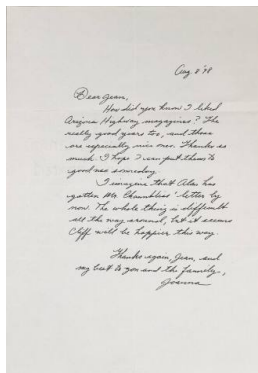 Aug. 8 '78
Dear Jean,
How did you know I liked
Arizona Highway magazines? The
really good years too, and these
are especially nice ones. Thanks so
much. I hope I can put them to
good use someday.
I imagine that Alex has
gotten Mr. Chambliss' letter by
now. The whole thing is difficult
all the way around, but it seems
Cliff will be happier this way.
Thanks again, Jean, and
my best to you and the family,
Joanna